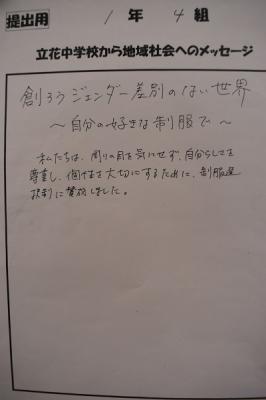 提出用
1年 4組
立花中学校から地域社会へのメッセージ
創ろうジェンダー差別のない世界
～自分の好きな制服で～
私たちは、周りの目を気にせず、自分らしさを
尊重し、個性を大切にするために、制服選
択制に賛成しました。